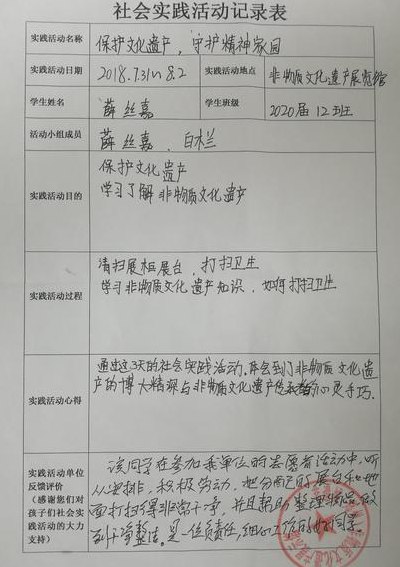 社会实践活动记录表
实践活动名称 保护文化遗产，守护精神家园
实践活动日期 2018.7.31~8.2 实践活动地点 非物质文化遗产展览馆
学生姓名 薛丝嘉 学生班级 2020届12班
活动小组成员 薛丝嘉，白木兰
实践活动目的
保护文化遗产
学习了解非物质文化遗产
实践活动过程
清扫展柜展台，打扫卫生
学习非物质文化遗产知识，如何打扫卫生
实践活动心得
通过这3天的社会实践活动，体会到了非物质文化遗
产的博大精深与非物质文化遗产传承者的心灵手巧.
实践活动单位
反馈评价
（感谢您们对
孩子们社会实
践活动的大力
支持）
该同学在参加我单位的志愿者活动中，听
从安排，积极劳动，把分配的展台和地
面打扫得非常干净，并且帮助整理物品，做
到干净整洁。是一位负责任，细心工作的好同学